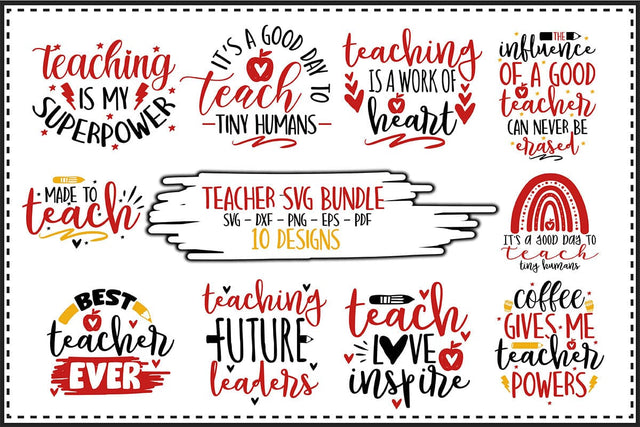 teaching
IS MY
SUPERPOWER
IT'S A GOOD DAY TO
teach
TINY HUMANS
teaching
IS A WORK OF
heart
THE
influence
OF A GOOD
teacher
CAN NEVER BE
erased
MADE TO
teach
TEACHER SVG BUNDLE
SVG - DXF - PNG - EPS - PDF
10 DESIGNS
IT'S A GOOD DAY TO
teach
tiny humans
BEST
teacher
EVER
teaching
FUTURE
leaders
teach
LOVE
inspire
coffee
GIVES ME
teacher
POWERS